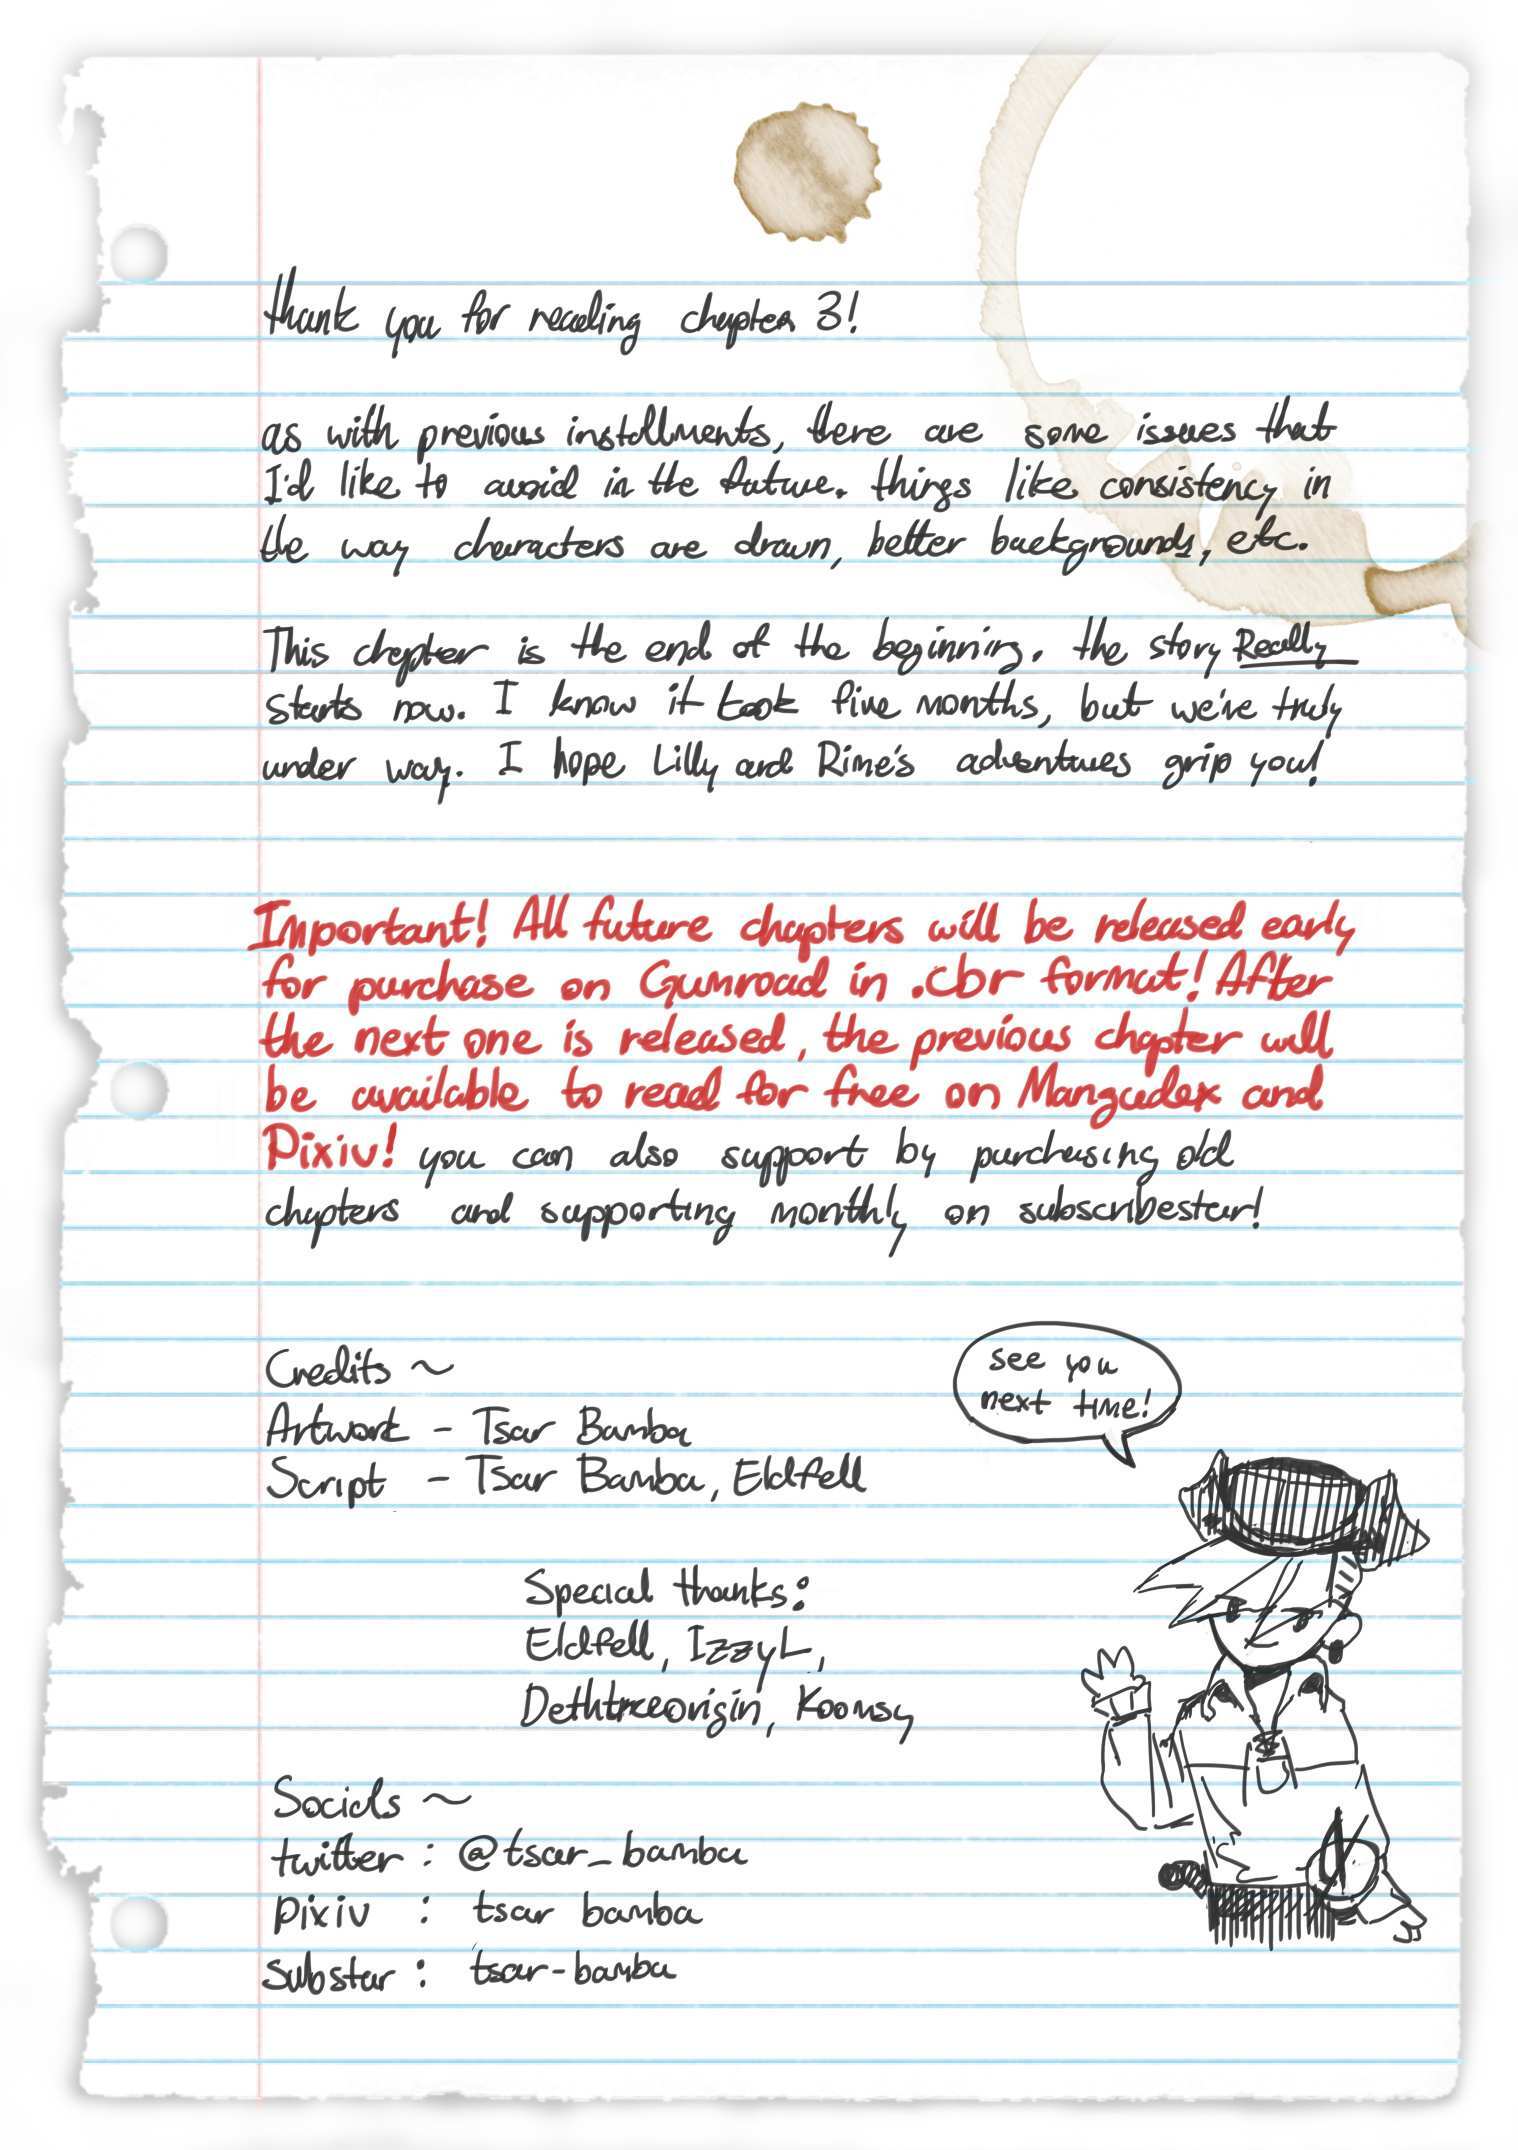 thank you for reading chapter 3!
as with previous installments, there are some issues that
I'd like to avoid in the future. things like consistency in
the way characters are drawn, better backgrounds, etc.
This chapter is the end of the beginning. the story Really
starts now. I know it took five months, but we've truly
under way. I hope Lilly and Rime's adventures grip you!
Important! All future chapters will be released early
for purchase on Gumroad in .cbr format! After
the next one is released, the previous chapter will
be available to read for free on Mangadex and
Pixiv! you can also support by purchasing old
chapters and supporting monthly on subscribestar!
see you
next time!
Credits ~
Artwork - Tsar Bamba
Script - Tsar Bamba, Eldfell
Special thanks:
Eldfell, IzzyL,
Dethtreeorigin, Koomsy
Socials ~
twitter : @tsar_bamba
pixiv : tsar bamba
Substar : tsar-bamba